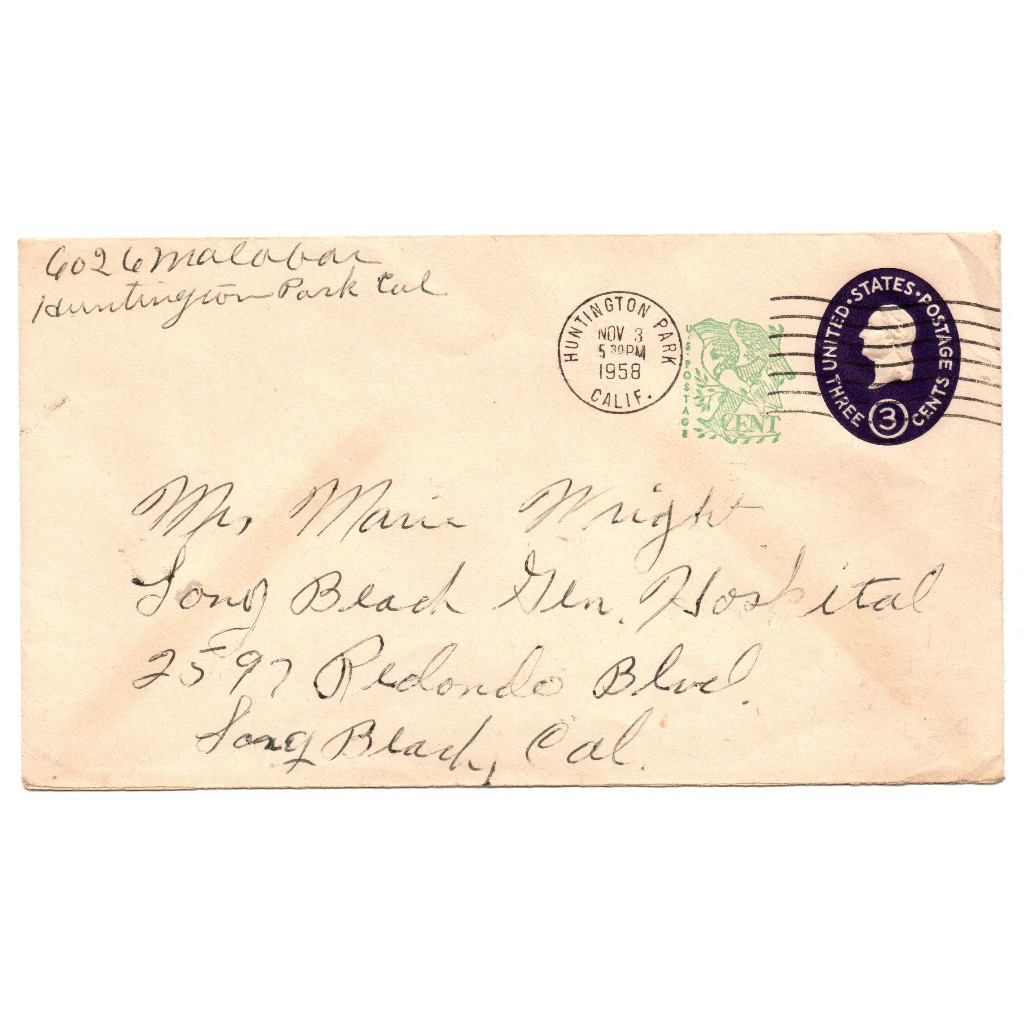 6026 Malabar
Huntington Park Cal
HUNTINGTON PARK
NOV 3
5 30PM
1958
CALIF.
U.S. POSTAGE
CENT
UNITED·STATES·POSTAGE
THREE 3 CENTS
Mr. Marie Wright
Long Beach Gen. Hospital
2597 Redondo Blvd.
Long Beach, Cal.